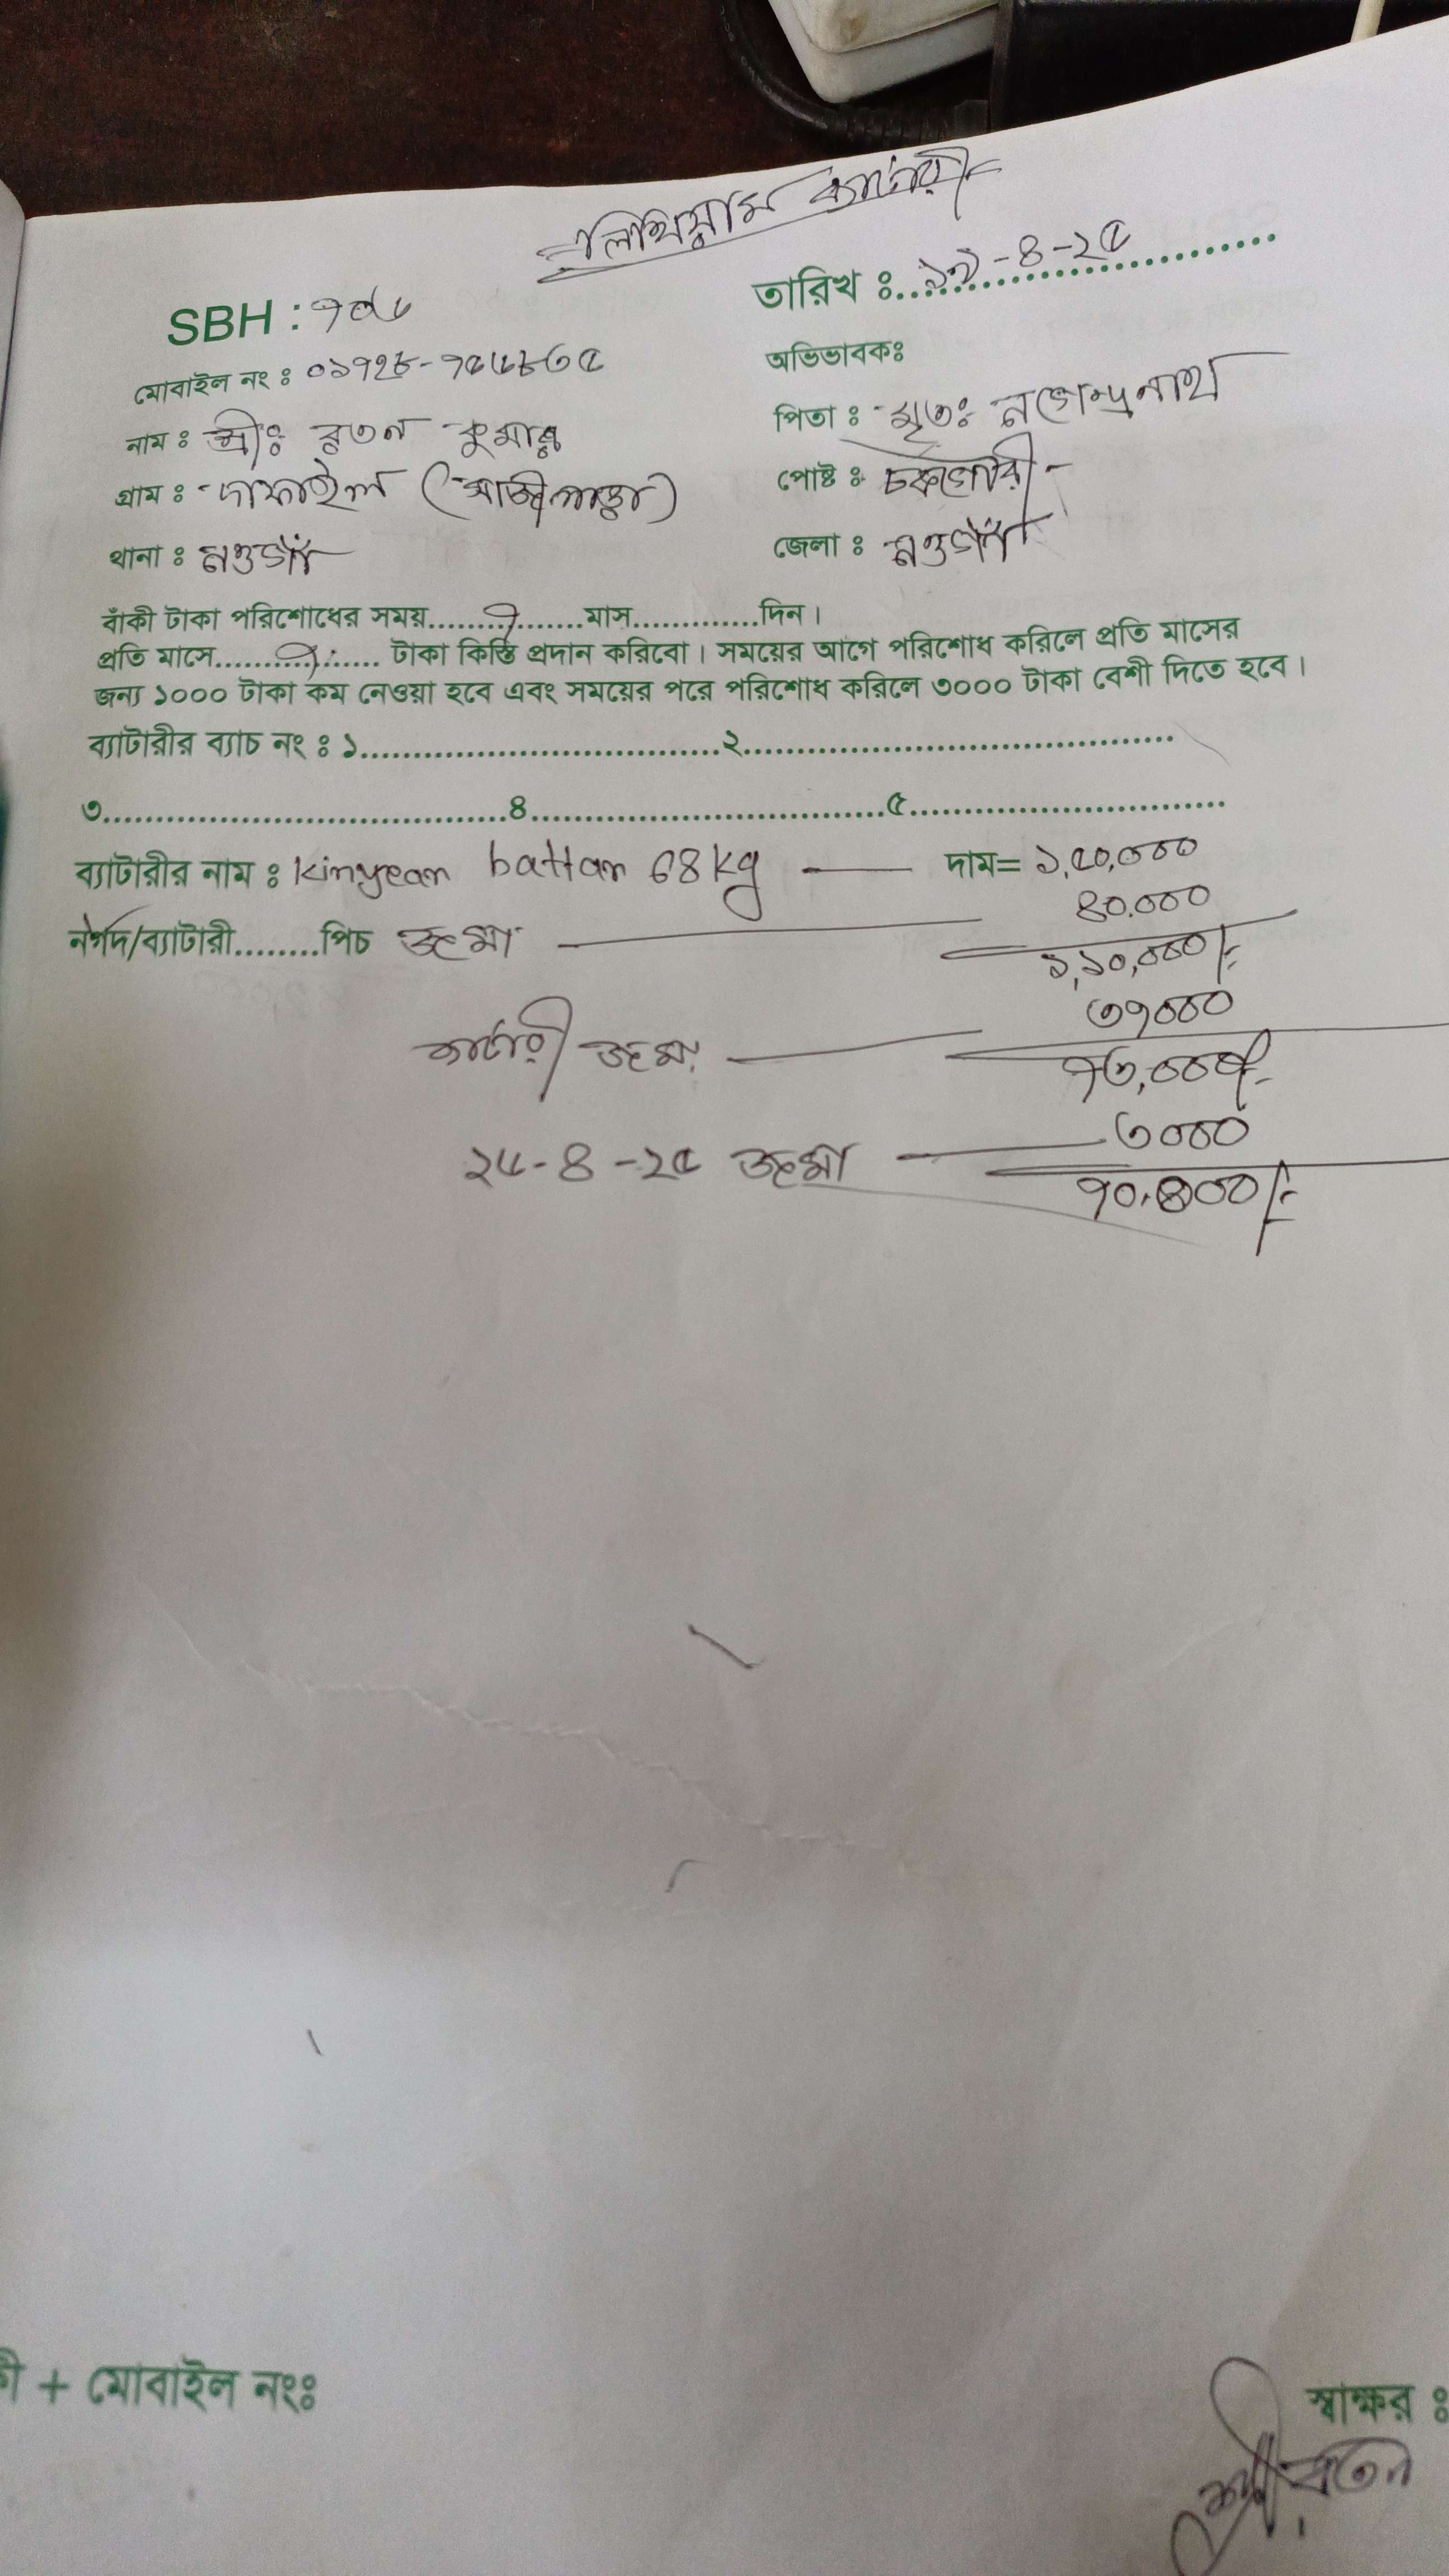 লিথিয়াম ব্যাটারী
SBH : ৭৩৬ তারিখ : ১৭-৪-২৫
মোবাইল নং : ০১৭২৮-৭৫৬৮৩৫ অভিভাবকঃ
নাম : শ্রীঃ রতন কুমার পিতা : মৃতঃ নগেন্দ্রনাথ
গ্রাম : দাফাইল পোষ্ট : চকগৌরী
থানা : নওগাঁ জেলা : নওগাঁ
বাঁকী টাকা পরিশোধের সময়.........৭.......মাস.............দিন।
প্রতি মাসে.................. টাকা কিস্তি প্রদান করিবো। সময়ের আগে পরিশোধ করিলে প্রতি মাসের
জন্য ১০০০ টাকা কম নেওয়া হবে এবং সময়ের পরে পরিশোধ করিলে ৩০০০ টাকা বেশী দিতে হবে।
ব্যাটারীর ব্যাচ নং : ১....................................২............................................
৩.........................................৪...................................৫..................................
ব্যাটারীর নাম : kingrean battarr 68 kg — দাম= ১,৫০,০০০
নগদ/ব্যাটারী........পিচ জমা — ৪০.০০০
১,১০,০০০/-
ব্যাটারী জমা — ৩৭০০০
৭৩,০০০/-
২৬-৪-২৫ জমা — ৩০০০
৭০,০০০/-
+ মোবাইল নংঃ স্বাক্ষর :
শ্রী রতন